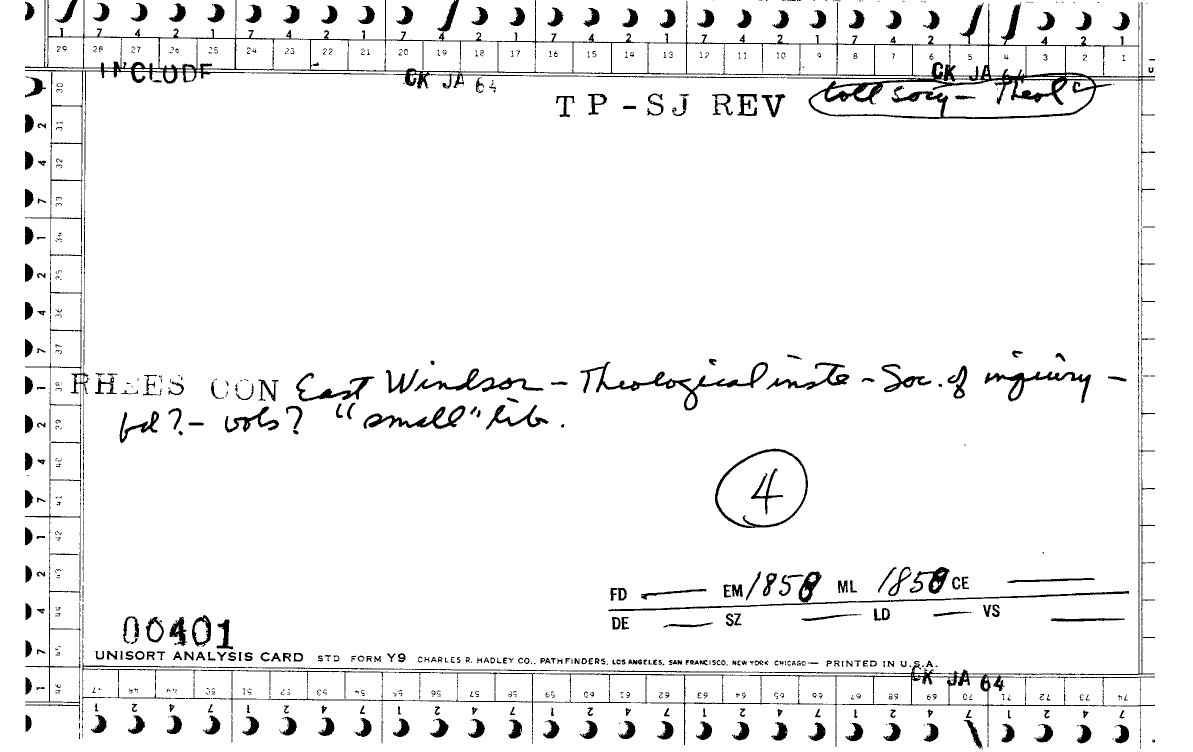 1 7 4 2 1 7 4 2 1 7 2 1 7 4 2 1 7 4 2 1 7 4 2 1 7 4 2 1
29 28 27 26 25 24 23 22 21 20 19 18 17 16 15 14 13 12 11 10 9 8 7 6 5 4 3 2 1
INCLUDE CK JA 64 CK JA 64
TP-SJ REV coll socy - Theol
RHEES CON East Windsor - Theological inste - Soc. of inquiry -
fd? - vols? "small" lib.
4
FD — EM 1858 ML 1858 CE —
DE — SZ — LD — VS —
00401
UNISORT ANALYSIS CARD STD FORM Y9 CHARLES R. HADLEY CO., PATHFINDERS, LOS ANGELES, SAN FRANCISCO, NEW YORK CHICAGO — PRINTED IN U.S.A.
CK JA 64
47 48 49 50 51 52 53 54 55 56 57 58 59 60 61 62 63 64 65 66 67 68 69 70 71 72 73 74